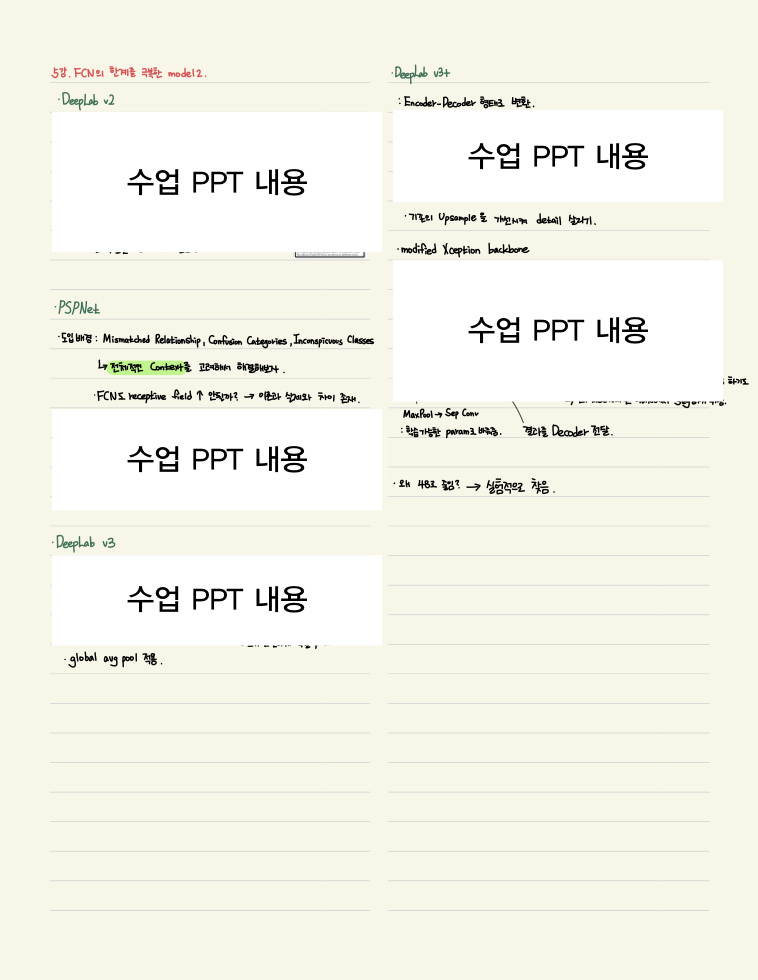 5강. FCN의 한계를 극복한 model 2.
·DeepLab v2
수업 PPT 내용
·PSPNet
·도입배경 : Mismatched Relationship, Confusion Categories, Inconspicuous Classes
↳ 전체적인 Context를 고려해서 해결해보자.
·FCN도 receptive field ↑ 안됐나? → 이론과 실제와 차이 존재.
수업 PPT 내용
·DeepLab v3
수업 PPT 내용
· global avg pool 적용.
·DeepLab v3+
: Encoder-Decoder 형태로 변환.
수업 PPT 내용
· 기존의 Upsample을 개선시켜 detail 살리기.
·modified Xception backbone
수업 PPT 내용
하기도
MaxPool → Sep Conv
: 학습가능한 param로 바꿔줌.
결과를 Decoder 전달.
· 왜 48로 줄임? → 실험적으로 찾음.